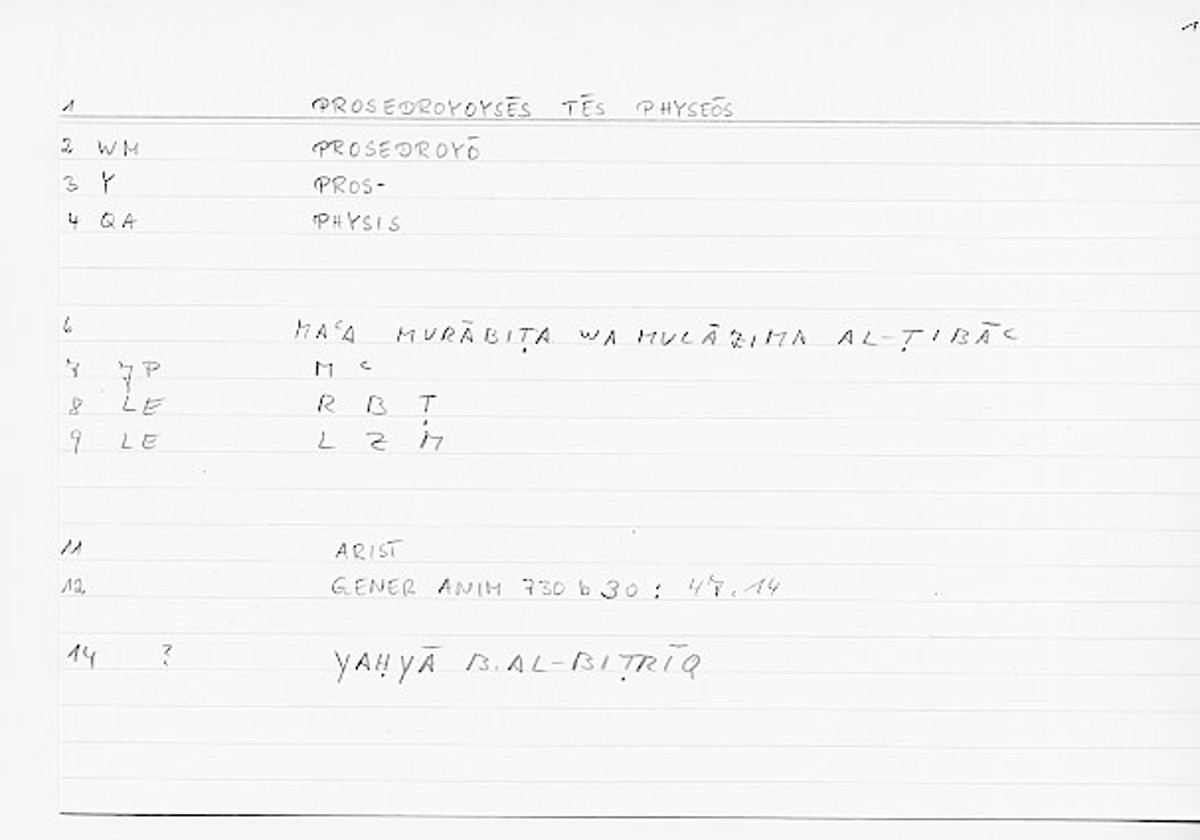 1
1 PROSEDROYOYSĒS TĒS PHYSEŌS
2 WM PROSEDROYŌ
3 Y PROS-
4 QA PHYSIS
6 MAʿA MURĀBIṬA WA MULĀZIMA AL-ṬIBĀʿ
7 P M ʿ
8 LE R B Ṭ
9 LE L Z M
11 ARIST
12 GENER ANIM 730 b 30 : 47.14
14 ? YAḤYĀ B. AL-BIṬRĪQ